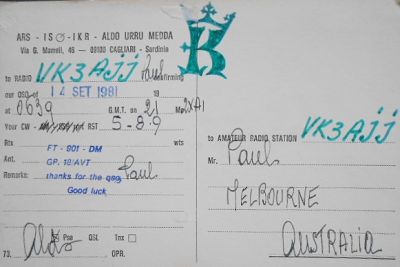 ARS - ISØ-IKR - ALDO URRU MEDDA
Via G. Mameli, 46 — 09100 CAGLIARI - Sardinia
K
to RADIO VK3AJJ Paul confirming
our QSO of 14 SET 1981 19
at 0639 G.M.T. on 21 Mc 2XAI
Your CW - RST 5-8-9
Rtx FT - 901 - DM wts
Ant. GP. 18/AVT
Remarks: thanks for the qso, Paul
Good luck
73. Aldo Pse QSL Tnx OPR.
to AMATEUR RADIO STATION VK3AJJ
Mr. Paul
MELBOURNE
AUSTRALIA